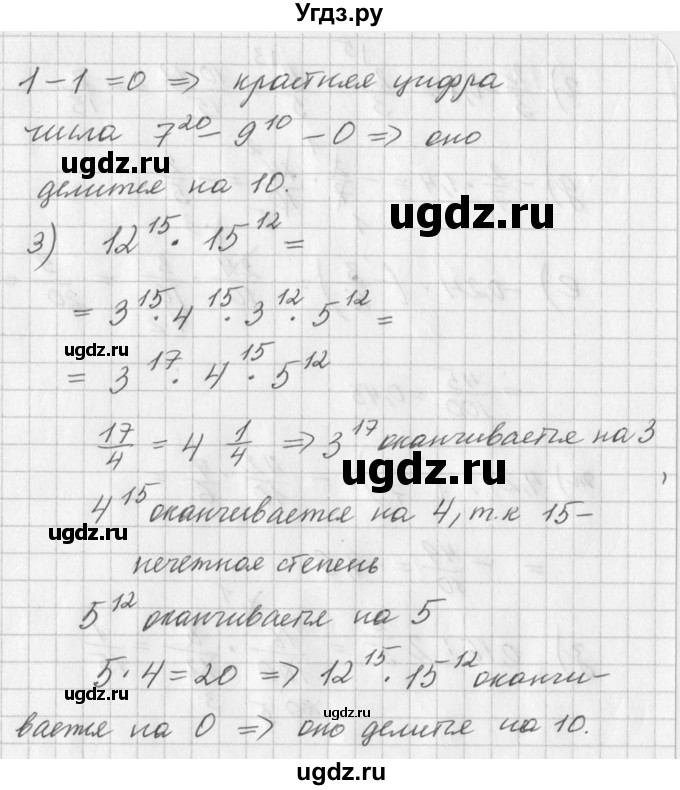 Угдз.ру
1 - 1 = 0 => крастняя цифра
числа 7^20 - 9^10 - 0 => оно
ugdz.ru
делится на 10.
ugdz.ru
3) 12^15 · 15^12 =
= 3^15 · 4^15 · 3^12 · 5^12 =
ugdz.ru
= 3^17 · 4^15 · 5^12
17/4 = 4 1/4 => 3^17 оканчивается на 3,
ugdz.ru
4^15 оканчивается на 4, т.к 15 -
ugdz.ru
нечетная степень
5^12 оканчивается на 5
5 · 4 = 20 => 12^15 · 15^12 оканчи-
ugdz.ru
ugdz.ru
вается на 0 => оно делится на 10.
ugdz.ru